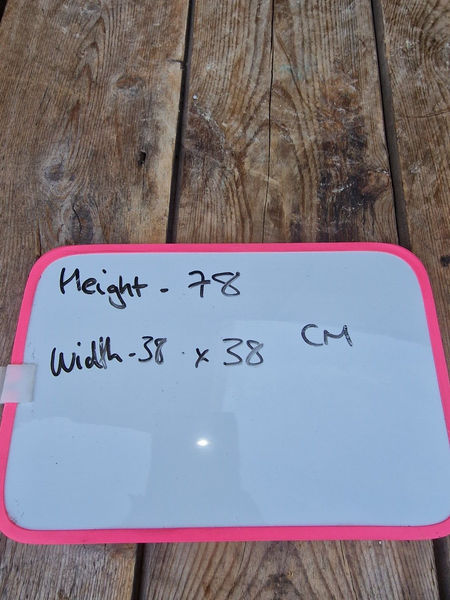 Height - 78
Width - 38 x 38 CM